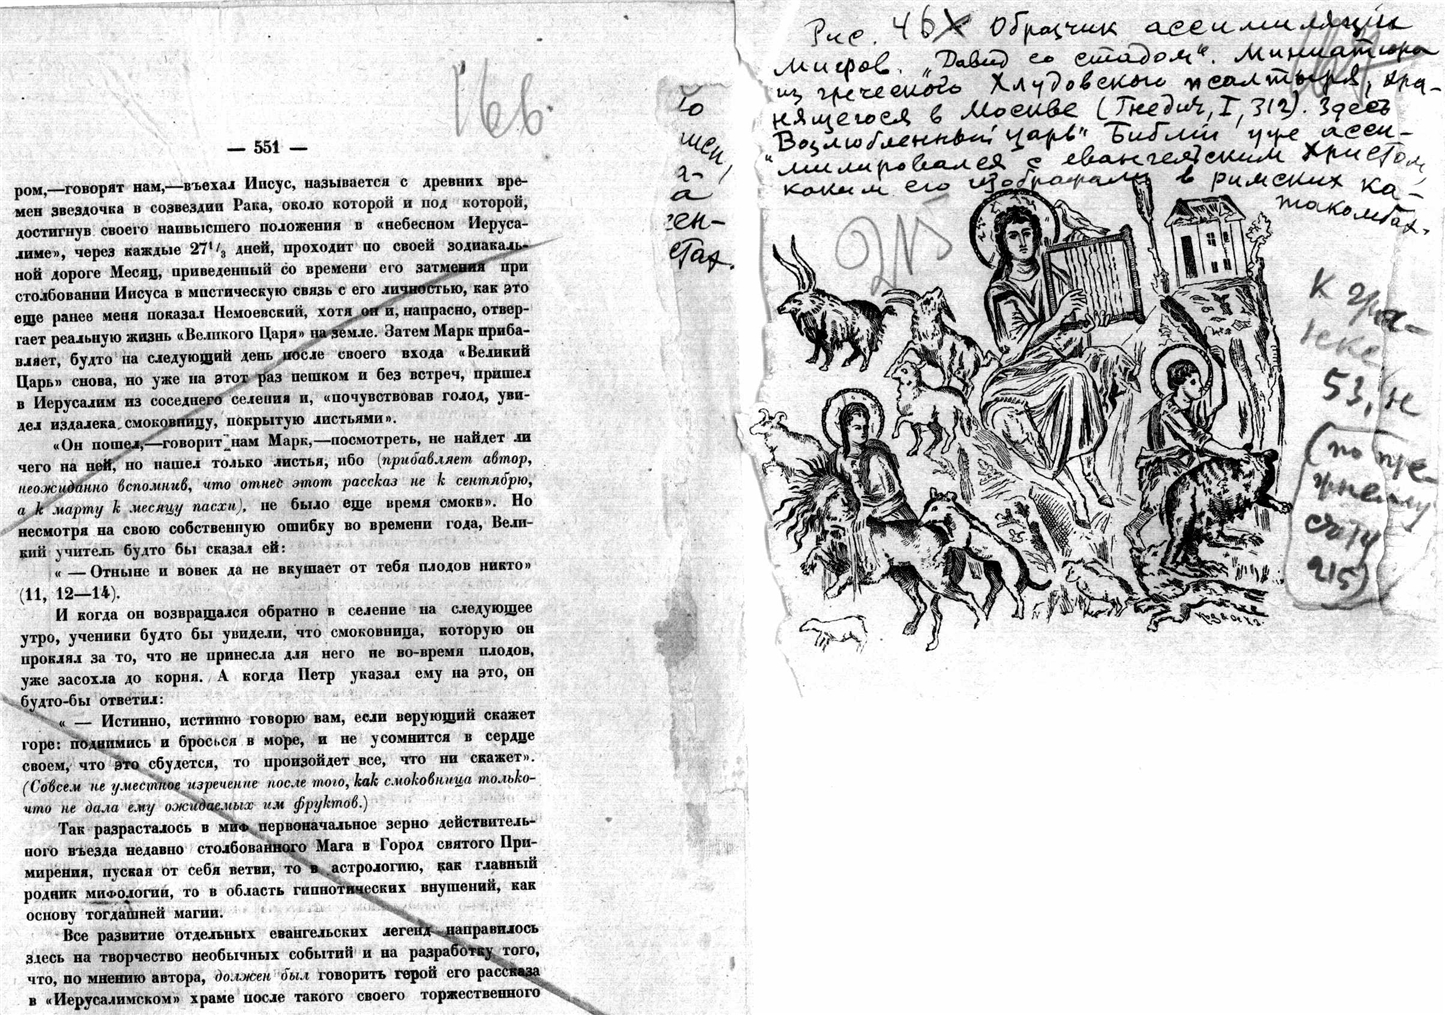 16 в.
— 551 —
ром,—говорят нам,—въехал Иисус, называется с древних вре-
мен звездочка в созвездии Рака, около которой и под которой,
достигнув своего наивысшего положения в «небесном Иеруса-
лиме», через каждые 27 1/3 дней, проходит по своей зодиакаль-
ной дороге Месяц, приведенный со времени его затмения при
столбовании Иисуса в мистическую связь с его личностью, как это
еще ранее меня показал Немоевский, хотя он и, напрасно, отвер-
гает реальную жизнь «Великого Царя» на земле. Затем Марк приба-
вляет, будто на следующий день после своего входа «Великий
Царь» снова, но уже на этот раз пешком и без встреч, пришел
в Иерусалим из соседнего селения и, «почувствовав голод, уви-
дел издалека смоковницу, покрытую листьями».
«Он пошел,—говорит нам Марк,—посмотреть, не найдет ли
чего на ней, но нашел только листья, ибо (прибавляет автор,
неожиданно вспомнив, что отнес этот рассказ не к сентябрю,
а к марту к месяцу пасхи), не было еще время смокв». Но
несмотря на свою собственную ошибку во времени года, Вели-
кий учитель будто бы сказал ей:
« — Отныне и вовек да не вкушает от тебя плодов никто»
(11, 12—14).
И когда он возвращался обратно в селение на следующее
утро, ученики будто бы увидели, что смоковница, которую он
проклял за то, что не принесла для него не во-время плодов,
уже засохла до корня. А когда Петр указал ему на это, он
будто-бы ответил:
« — Истинно, истинно говорю вам, если верующий скажет
горе: поднимись и бросься в море, и не усомнится в сердце
своем, что это сбудется, то произойдет все, что ни скажет».
(Совсем не уместное изречение после того, как смоковница только-
что не дала ему ожидаемых им фруктов.)
Так разрасталось в миф первоначальное зерно действитель-
ного въезда недавно столбованного Мага в Город святого При-
мирения, пуская от себя ветви, то в астрологию, как главный
родник мифологии, то в область гипнотических внушений, как
основу тогдашней магии.
Все развитие отдельных евангельских легенд направилось
здесь на творчество необычных событий и на разработку того,
что, по мнению автора, должен был говорить герой его рассказа
в «Иерусалимском» храме после такого своего торжественного
Рис. 46 Образчик ассимиляции
мифов. „Давид со стадом“. Миниатюра
из греческого Хлудовского псалтыря, хра-
нящегося в Москве (Гнедич, I, 312). Здесь
„Возлюбленный царь“ Библии уже асси-
милировался с евангельским Христом,
каким его изображали в римских ка-
такомбах.
215
К гра-
нке
53, н
(по пре-
жнему
счету
215)